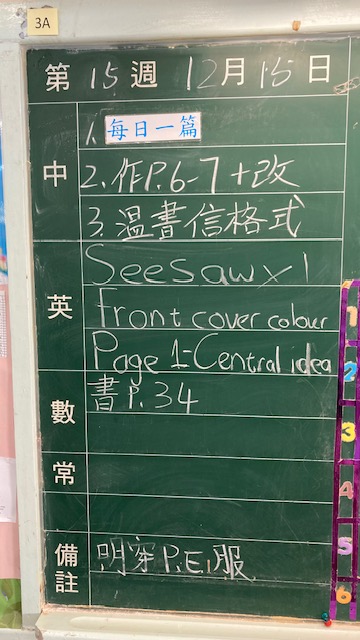 3A
第15週 12月15日
中
1. 每日一篇
2. 作P.6-7+改
3. 温書信格式
英
Seesaw x 1
Front cover colour
Page 1-Central idea
數
書P.34
常
備註
明穿P.E.服
1
2
3
4
5
6